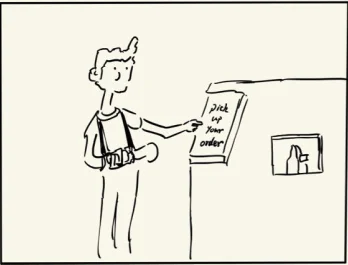 pick
up
your
order